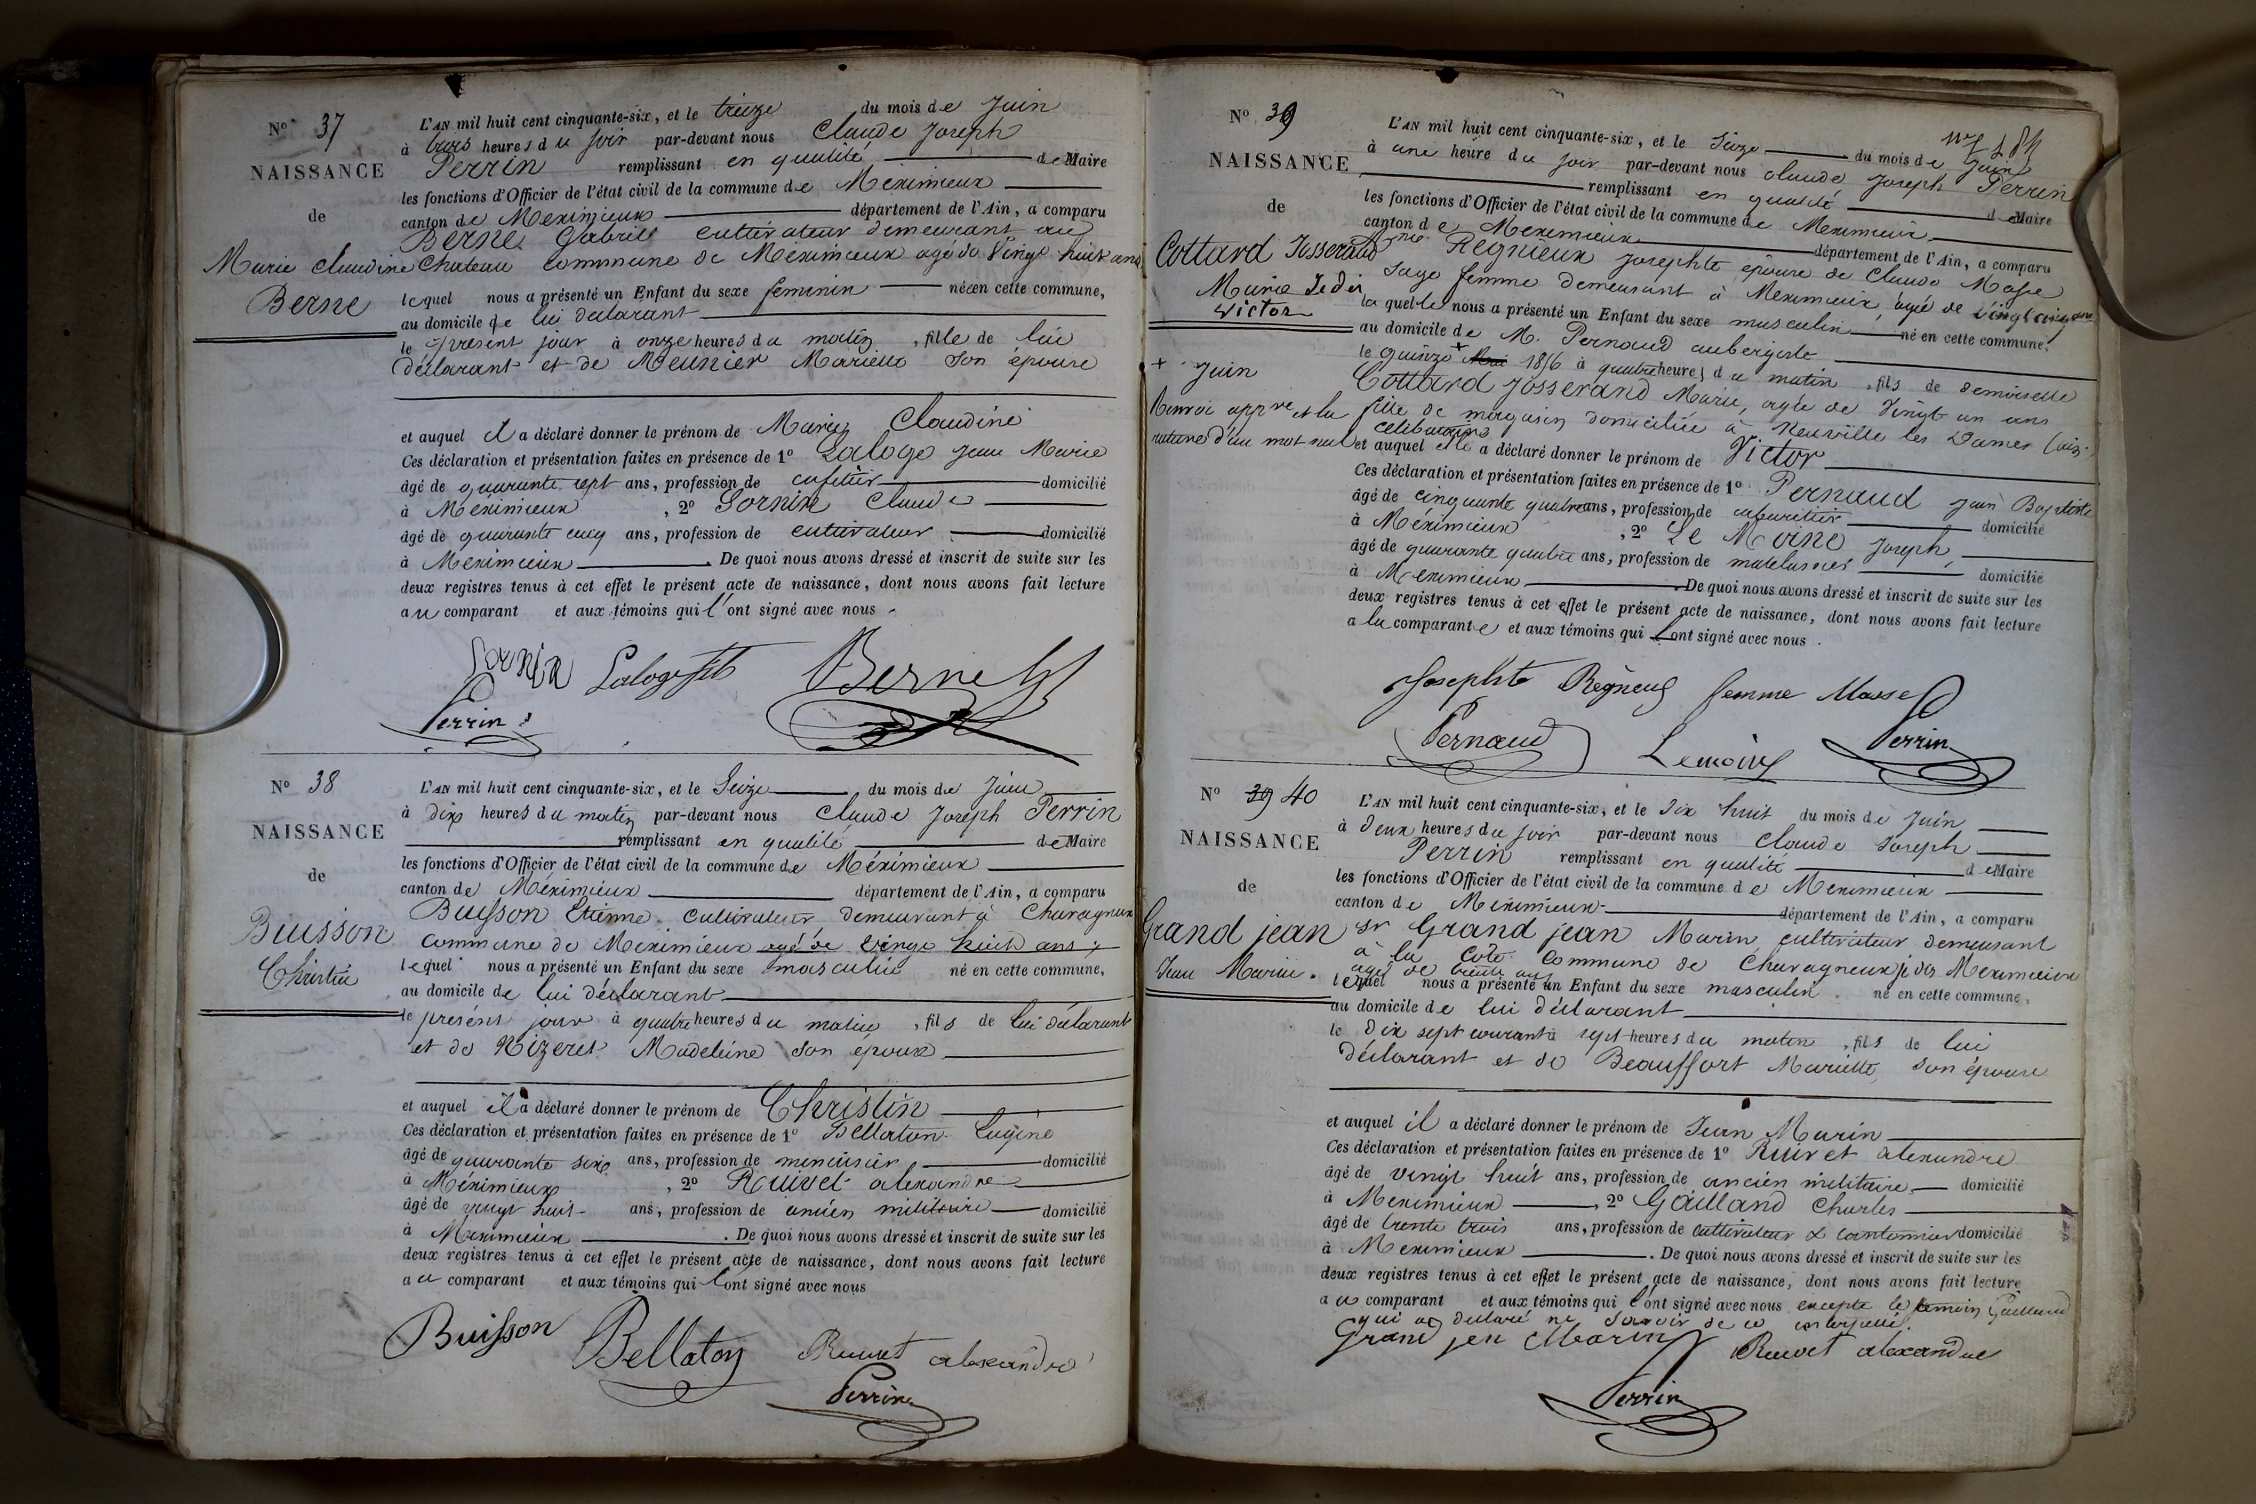 No 37
NAISSANCE
de
Marie Claudine
Berne
L'AN mil huit cent cinquante-six, et le treize du mois de Juin
à trois heures du soir par-devant nous Claude Joseph
Perrin remplissant en qualité de Maire
les fonctions d'Officier de l'état civil de la commune de Meximieux
canton de Meximieux département de l'Ain, a comparu
Berne Gabriel cultivateur demeurant au
Chateau commune de Méximieux agé de Vingt huit ans
lequel nous a présenté un Enfant du sexe feminin née en cette commune,
au domicile de lui declarant
le present jour à onze heures du matin, fille de lui
déclarant et de Meunier Mariette son épouse
et auquel il a déclaré donner le prénom de Marie Claudine
Ces déclaration et présentation faites en présence de 1o Laloge Jean Marie
âgé de quarante sept ans, profession de cafetier domicilié
à Méximieux, 2o Sornin Claude
âgé de quarante cinq ans, profession de cultivateur domicilié
à Meximieux. De quoi nous avons dressé et inscrit de suite sur les
deux registres tenus à cet effet le présent acte de naissance, dont nous avons fait lecture
au comparant et aux témoins qui l'ont signé avec nous.
Sornin Laloge Berne
Perrin
No 38
NAISSANCE
de
Buisson
Christin
L'AN mil huit cent cinquante-six, et le Seize du mois de Juin
à dix heures du matin par-devant nous Claude Joseph Perrin
remplissant en qualité de Maire
les fonctions d'Officier de l'état civil de la commune de Méximieux
canton de Méximieux département de l'Ain, a comparu
Buisson Etienne cultivateur demeurant à Charagneux
commune de Meximieux agé de vingt huit ans
lequel nous a présenté un Enfant du sexe masculin né en cette commune,
au domicile de lui déclarant
le présent jour à quatre heures du matin, fils de lui déclarant
et de Nizeret Madeleine son épouse
et auquel il a déclaré donner le prénom de Christin
Ces déclaration et présentation faites en présence de 1o Bellaton Eugène
âgé de quarante six ans, profession de menuisier domicilié
à Méximieux, 2o Ruivet alexandre
âgé de vingt huit ans, profession de ancien militaire domicilié
à Meximieux. De quoi nous avons dressé et inscrit de suite sur les
deux registres tenus à cet effet le présent acte de naissance, dont nous avons fait lecture
au comparant et aux témoins qui l'ont signé avec nous
Buisson Bellaton Ruivet alexandre
Perrin
No 39
NAISSANCE
de
Cottard Josserand
Marie
Victor
+ Juin
Renvoi appvé et la
rature d'un mot nul
L'AN mil huit cent cinquante-six, et le Seize du mois de Juin
à une heure du soir par-devant nous claude Joseph Perrin
remplissant en qualité de Maire
les fonctions d'Officier de l'état civil de la commune de Meximieux
canton de Meximieux département de l'Ain, a comparu
Regnieux Josephte épouse de Claude Masse
sage femme demeurant à Meximieux, agée de Vingt cinq ans
laquelle nous a présenté un Enfant du sexe masculin né en cette commune,
au domicile de M. Pernaud aubergiste
le quinze + Mai 1856 à quatre heures du matin, fils de demoiselle
Cottard Josserand Marie, agée de Vingt un ans
fille de magasin domiciliée à Neuville les Dames (ain)
celibataire
et auquel elle a déclaré donner le prénom de Victor
Ces déclaration et présentation faites en présence de 1o Pernaud Jean Baptiste
âgé de cinquante quatre ans, profession de cabaretier domicilié
à Méximieux, 2o Le Moine Joseph,
âgé de quarante quatre ans, profession de matelassier domicilié
à Meximieux. De quoi nous avons dressé et inscrit de suite sur les
deux registres tenus à cet effet le présent acte de naissance, dont nous avons fait lecture
a la comparante et aux témoins qui l'ont signé avec nous.
Josephte Régneux femme Masse
Pernaud Lemoine Perrin
No 39 40
NAISSANCE
de
Grand jean
Jean Marin.
L'AN mil huit cent cinquante-six, et le Dix huit du mois de Juin
à deux heures du soir par-devant nous Claude Joseph
Perrin remplissant en qualité de Maire
les fonctions d'Officier de l'état civil de la commune de Meximieux
canton de Meximieux département de l'Ain, a comparu
sr Grand jean Marin cultivateur demeurant
à la Côte commune de Charagneux Meximieux
agé de trente ans
lequel nous a présenté un Enfant du sexe masculin né en cette commune,
au domicile de lui déclarant
le dix sept courant à sept heures du matin, fils de lui
déclarant et de Beauffort Mariette, son épouse
et auquel il a déclaré donner le prénom de Jean Marin
Ces déclaration et présentation faites en présence de 1o Ruivet alexandre
âgé de vingt huit ans, profession de ancien militaire domicilié
à Meximieux, 2o Gailland Charles
âgé de trente trois ans, profession de cultivateur & cantonnier domicilié
à Meximieux. De quoi nous avons dressé et inscrit de suite sur les
deux registres tenus à cet effet le présent acte de naissance, dont nous avons fait lecture
au comparant et aux témoins qui l'ont signé avec nous excepté le temoin Gailland
qui a declaré ne savoir de ce interpellé.
Grand jen Marin Ruivet alexandre
Perrin